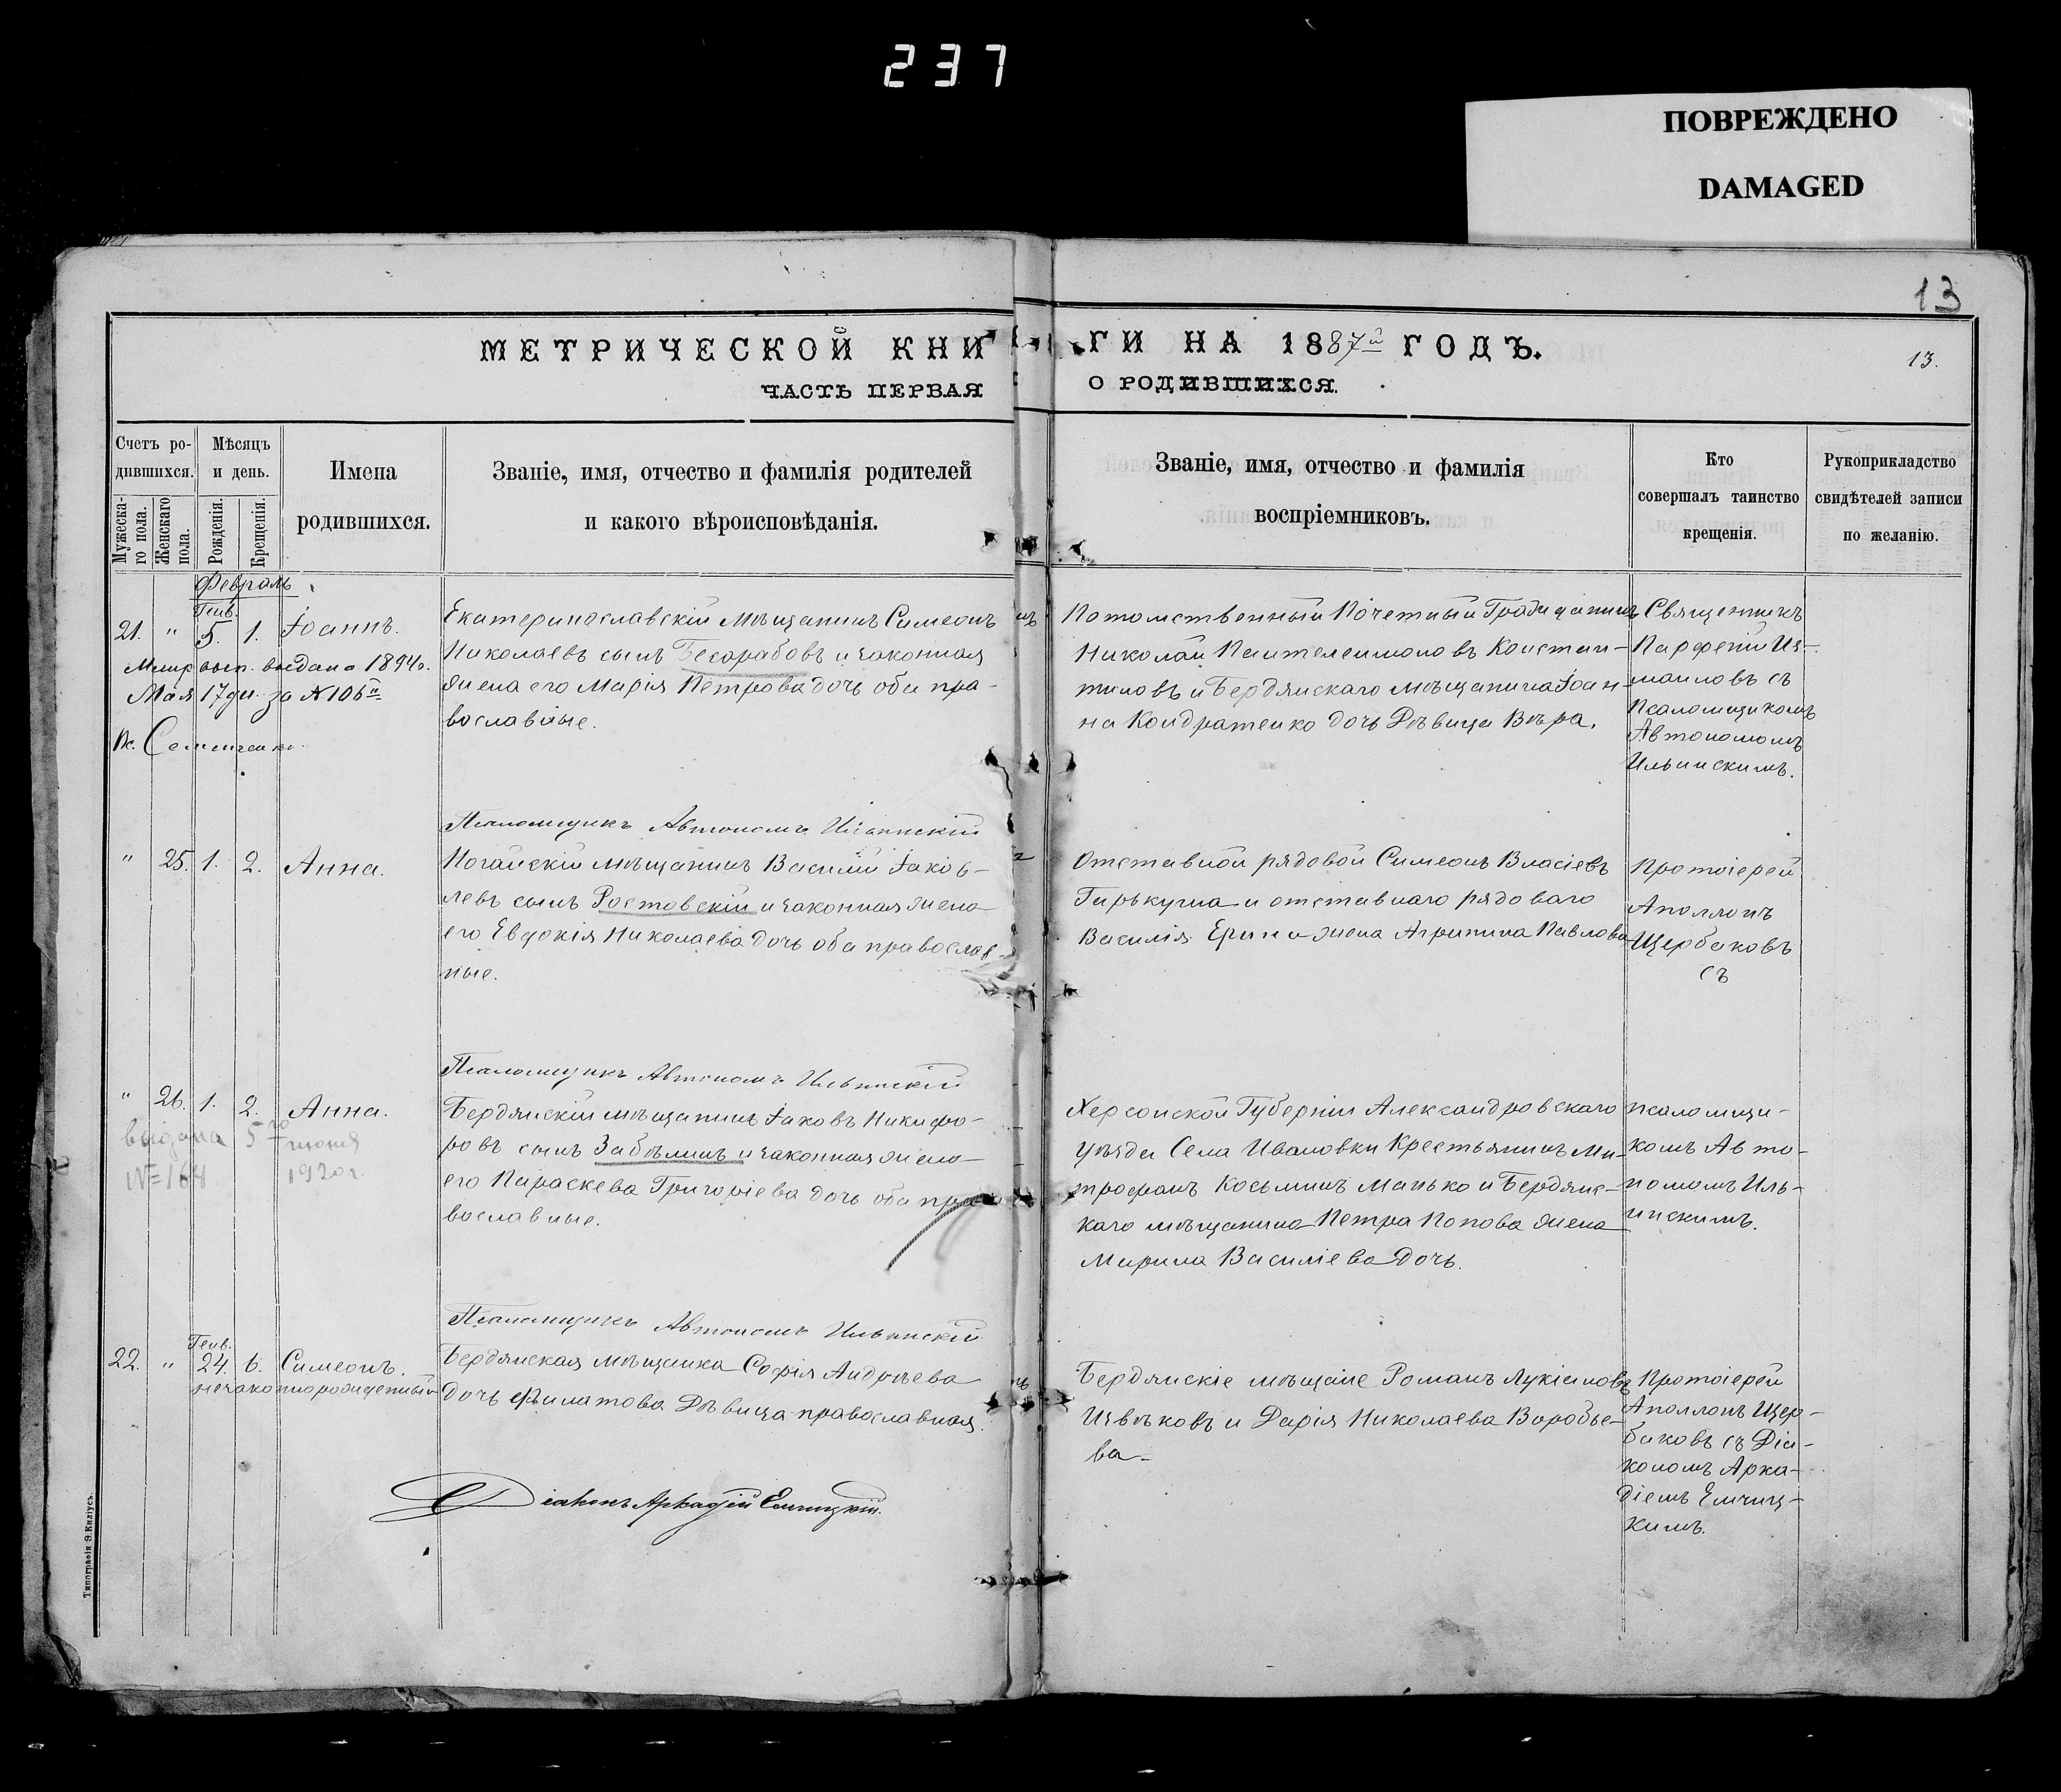 237
ПОВРЕЖДЕНО
DAMAGED
13
МЕТРИЧЕСКОЙ КНИ
ГИ НА 1887й ГОДЪ.
13.
ЧАСТЬ ПЕРВАЯ
О РОДИВШИХСЯ.
Счетъ ро-
дившихся.
Мужеска-
го пола.
Женскаго
пола.
Мѣсяцъ
и день.
Рожденія.
Крещенія.
Имена
родившихся.
Званіе, имя, отчество и фамилія родителей
и какого вѣроисповѣданія.
Званіе, имя, отчество и фамилія
воспріемниковъ.
Кто
совершалъ таинство
крещенія.
Рукоприкладство
свидѣтелей записи
по желанію.
Февраль
Генв.
21. " 5. 1. Іоаннъ.
Метр. вып. выдана 1894 г.
Мая 17 дн. за №106й
Семенченко.
Екатеринославскій мѣщанинъ Симеонъ
Николаевъ сынъ Бесарабовъ и законная
жена его Марія Петрова дочь оба пра-
вославные.
Потомственный Почетный Гражданинъ
Николай Пантелеимоновъ Констан-
тиновъ и Бердянскаго мѣщанина Іоан-
на Кондратенко дочь Дѣвица Вѣра.
Священникъ
Парфеній Из-
маиловъ съ
Псаломщикомъ
Автономомъ
Ильинскимъ.
Псаломщикъ Автономъ Ильинскій
" 25. 1. 2. Анна.
Ногайскій мѣщанинъ Василій Іаков-
левъ сынъ Ростовскій и законная жена
его Евдокія Николаева дочь оба православ-
ные.
Отставной рядовой Симеонъ Власіевъ
Гирькуша и отставнаго рядоваго
Василія жена Агрипина Павлова
Протоіерей
Аполлонъ
Щербаковъ
съ
Псаломщикъ Автономъ Ильинскій
" 26. 1. 2. Анна.
выдана 5го июня
№=164 1920г.
Бердянскій мѣщанинъ Іаковъ Никифо-
ровъ сынъ Забѣлинъ и законная жена
его Параскева Григоріева дочь оба пра-
вославные.
Херсонской Губерніи Александровскаго
уѣзда Села Ивановки Крестьянинъ Ми-
трофанъ Косьминъ Манько и Бердянс-
каго мѣщанина Петра Попова жена
Марина Василіева дочь.
псаломщи-
комъ Авто-
номомъ Иль-
инскимъ.
Псаломщикъ Автономъ Ильинскій
Генв.
22. " 24. 6. Симеонъ.
незаконнорожденный
Бердянская мѣщанка Софія Андреева
дочь Филатова Дѣвица православная.
Бердянскіе мѣщане Романъ Лукіановъ
Ивѣковъ и Дарія Николаева Воробье-
ва
Протоіерей
Аполлонъ Щер-
баковъ съ Діа-
кономъ Арка-
діемъ Емчиц-
кимъ.
Діаконъ Аркадій Емчицкій.
Типографія Э. Киліусъ.